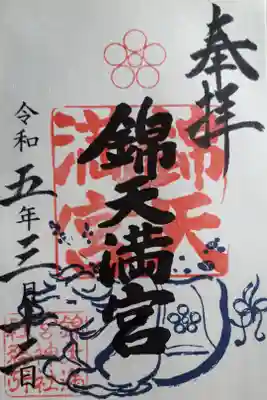 奉拝
錦天満宮
錦天
満宮
令和五年三月十二日